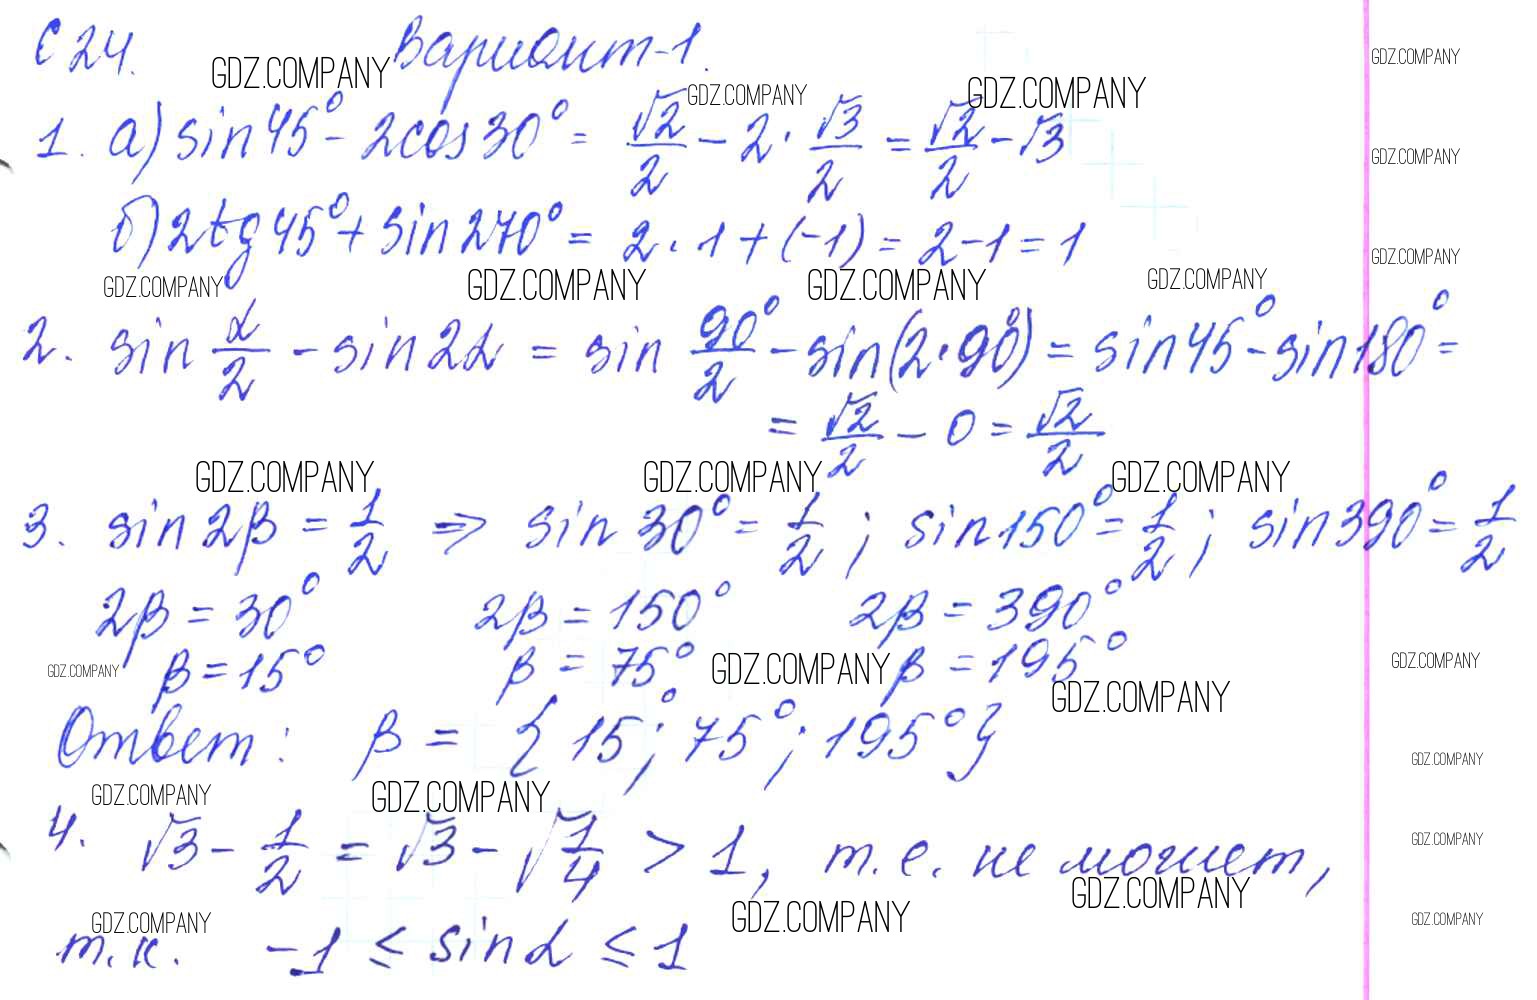 С 24. Вариант-1.
GDZ.COMPANY GDZ.COMPANY GDZ.COMPANY GDZ.COMPANY
1. а) sin 45° - 2cos 30° = √2/2 - 2 · √3/2 = √2/2 - √3
GDZ.COMPANY
б) 2tg 45° + sin 270° = 2 · 1 + (-1) = 2 - 1 = 1
GDZ.COMPANY
GDZ.COMPANY GDZ.COMPANY GDZ.COMPANY GDZ.COMPANY
2. sin α/2 - sin 2α = sin 90°/2 - sin(2 · 90°) = sin 45° - sin 180° =
= √2/2 - 0 = √2/2
GDZ.COMPANY GDZ.COMPANY GDZ.COMPANY
3. sin 2β = 1/2 => sin 30° = 1/2 ; sin 150° = 1/2 ; sin 390° = 1/2
2β = 30° 2β = 150° 2β = 390°
β = 15° β = 75° β = 195°
GDZ.COMPANY GDZ.COMPANY GDZ.COMPANY GDZ.COMPANY
Ответ: β = {15°; 75°; 195°}
GDZ.COMPANY
GDZ.COMPANY GDZ.COMPANY
4. √3 - 1/2 = √3 - √1/4 > 1, т.е. не может,
GDZ.COMPANY
GDZ.COMPANY GDZ.COMPANY GDZ.COMPANY GDZ.COMPANY
т.к. -1 ≤ sin α ≤ 1